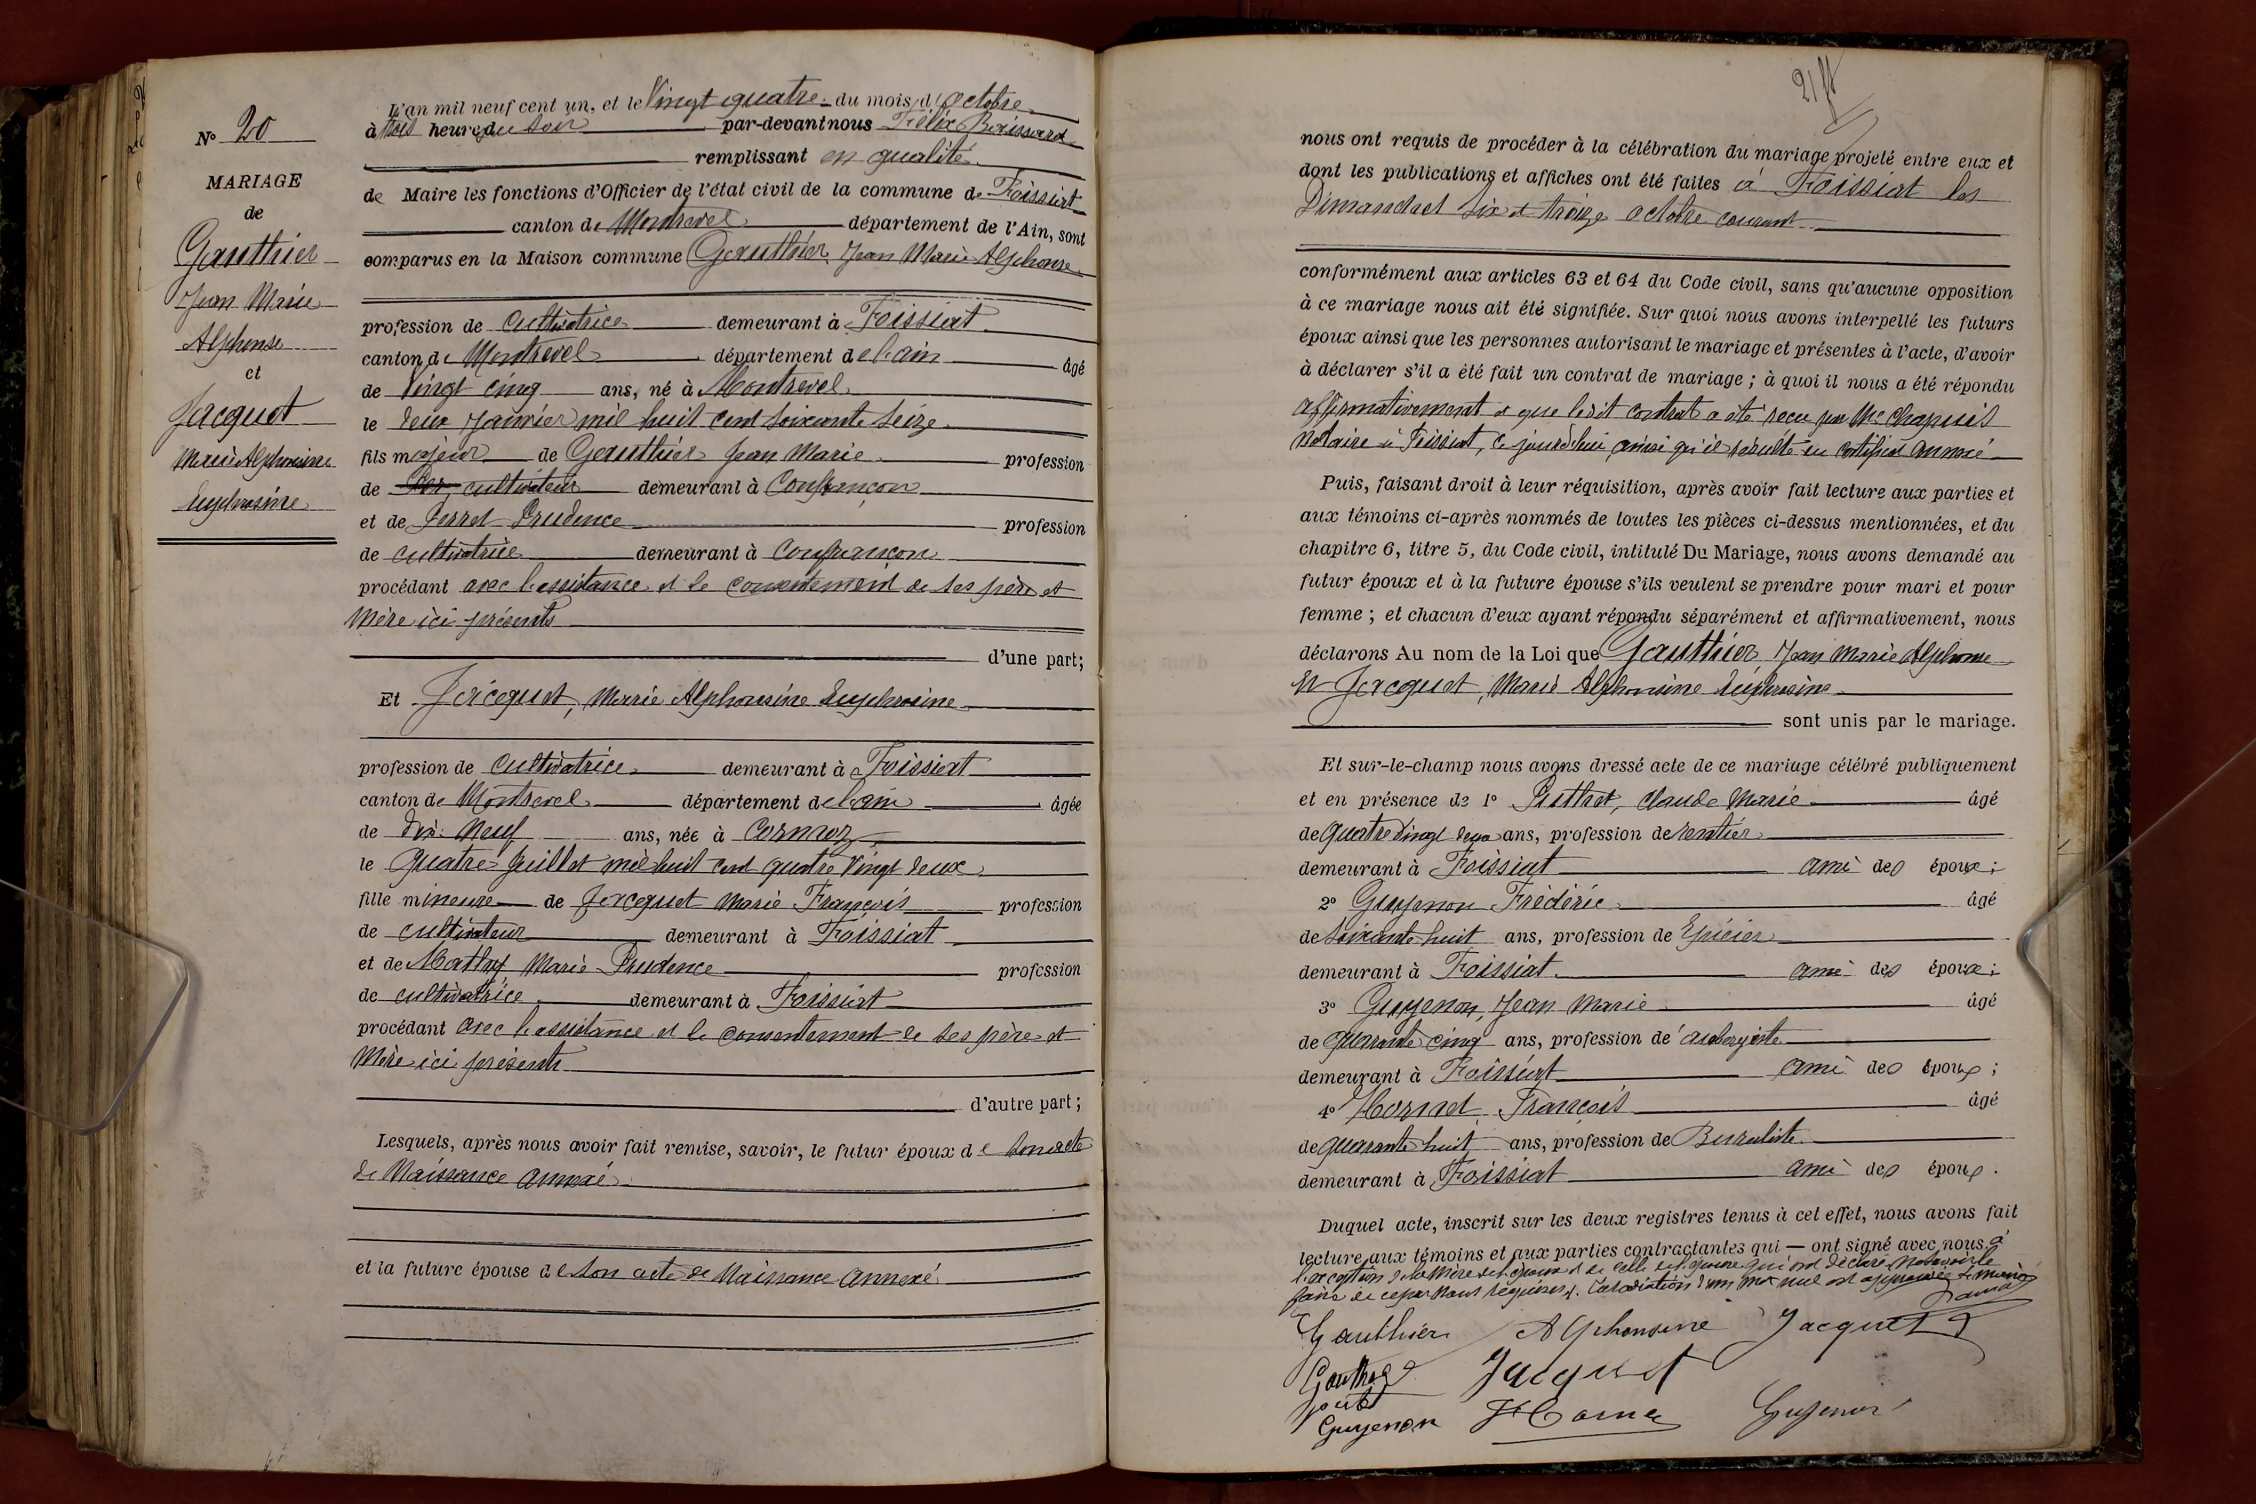 N° 20
MARIAGE
de
Gauthier
Jean Marie
Alphonse
et
Jacquet
Marie Alphonsine
Euphrosine
L'an mil neuf cent un, et le Vingt quatre du mois d'octobre
à trois heures du soir par-devant nous Félix Boissard
remplissant en qualité
de Maire les fonctions d'Officier de l'état civil de la commune de Foissiat
canton de Montrevel département de l'Ain, sont
comparus en la Maison commune Gauthier Jean Marie Alphonse
profession de cultivatrice demeurant à Foissiat
canton de Montrevel département de l'ain âgé
de Vingt cinq ans, né à Montrevel
le deux Janvier mil huit cent soixante seize
fils majeur de Gauthier Jean Marie profession
de cultivateur demeurant à Confrançon
et de Perret Prudence profession
de cultivatrice demeurant à Confrançon
procédant avec l'assistance et le consentement de ses père et
Mère ici présents
d'une part;
Et Jacquet, Marie Alphonsine Euphrosine
profession de cultivatrice demeurant à Foissiat
canton de Montrevel département de l'ain âgée
de dix-neuf ans, née à Cormoz
le quatre Juillet mil huit cent quatre Vingt deux
fille mineure de Jacquet Marie François profession
de cultivateur demeurant à Foissiat
et de Mathy Marie Prudence profession
de cultivatrice demeurant à Foissiat
procédant avec l'assistance et le consentement de ses père et
Mère ici présents
d'autre part;
Lesquels, après nous avoir fait remise, savoir, le futur époux de son acte
de Naissance annexé
et la future épouse de son acte de Naissance annexé
nous ont requis de procéder à la célébration du mariage projeté entre eux et
dont les publications et affiches ont été faites à Foissiat les
Dimanches six et treize octobre courant
conformément aux articles 63 et 64 du Code civil, sans qu'aucune opposition
à ce mariage nous ait été signifiée. Sur quoi nous avons interpellé les futurs
époux ainsi que les personnes autorisant le mariage et présentes à l'acte, d'avoir
à déclarer s'il a été fait un contrat de mariage ; à quoi il nous a été répondu
affirmativement et que ledit contrat a été reçu par Me Chapuis
Notaire à Foissiat, ce jourd'hui ainsi qu'il résulte du certificat annexé
Puis, faisant droit à leur réquisition, après avoir fait lecture aux parties et
aux témoins ci-après nommés de toutes les pièces ci-dessus mentionnées, et du
chapitre 6, titre 5, du Code civil, intitulé Du Mariage, nous avons demandé au
futur époux et à la future épouse s'ils veulent se prendre pour mari et pour
femme ; et chacun d'eux ayant répondu séparément et affirmativement, nous
déclarons Au nom de la Loi que Gauthier Jean Marie Alphonse
Et Jacquet, Marie Alphonsine Euphrosine
sont unis par le mariage.
Et sur-le-champ nous avons dressé acte de ce mariage célébré publiquement
et en présence de 1° Claude Marie âgé
de quatre Vingt deux ans, profession de rentier
demeurant à Foissiat ami des époux ;
2° Guyenon Frédéric âgé
de soixante huit ans, profession de Epicier
demeurant à Foissiat ami des époux ;
3° Guyenon, Jean Marie âgé
de quarante cinq ans, profession de aubergiste
demeurant à Foissiat ami des époux ;
4° Cornet François âgé
de quarante huit ans, profession de Buraliste
demeurant à Foissiat ami des époux .
Duquel acte, inscrit sur les deux registres tenus à cet effet, nous avons fait
lecture aux témoins et aux parties contractantes qui — ont signé avec nous à
l'exception de la Mère de l'époux et de celle de l'épouse qui ont déclaré ne savoir le
faire de ce par Nous requises. La radiation d'un mot nul est approuvée
Gauthier Alphonsine Jacquet
Gauthier Jacquet
Guyenon Guyenon